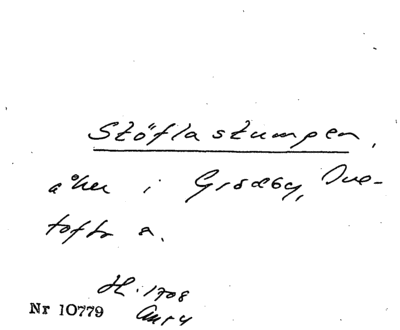 Stöflastumpen,
åker i Grödby, Tve-
tofta s.
H. 1708
Nr 10779